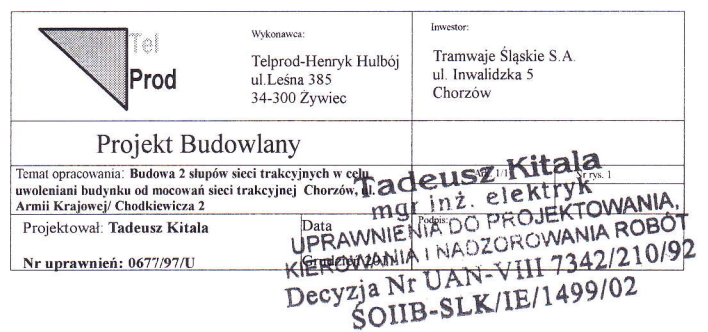 Tel
Prod
Wykonawca:
Telprod-Henryk Hulbój
ul.Leśna 385
34-300 Żywiec
Inwestor:
Tramwaje Śląskie S.A.
ul. Inwalidzka 5
Chorzów
Projekt Budowlany
Temat opracowania: Budowa 2 słupów sieci trakcyjnych w celu
uwoleniani budynku od mocowań sieci trakcyjnej Chorzów, ul.
Armii Krajowej/ Chodkiewicza 2
1/1
Nr rys. 1
Projektował: Tadeusz Kitala
Nr uprawnień: 0677/97/U
Data
Grudzień
Podpis:
Tadeusz Kitala
mgr inż. elektryk
UPRAWNIENIA DO PROJEKTOWANIA,
KIEROWANIA I NADZOROWANIA ROBÓT
Decyzja Nr UAN-VIII 7342/210/92
ŚOIIB-SLK/IE/1499/02